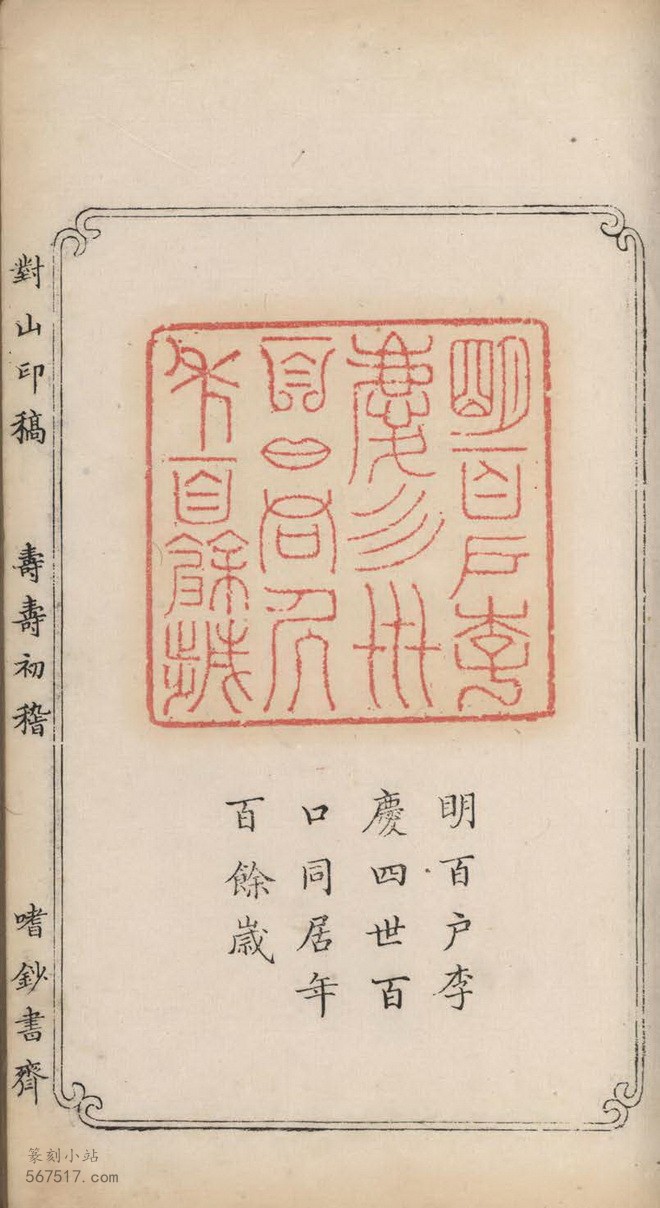 明百户李
慶四世百
口同居年
百餘歲
明百户李
慶四世百
口同居年
百餘歲
對山印稿
壽壽初稽
嗜鈔書齋
篆刻小站
567517.com